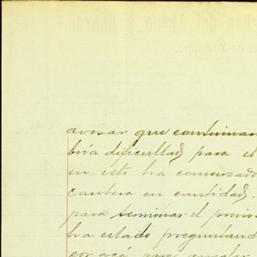 avisar que continuan
bria dificultad para el
en esto ha comenzado
cantera en cantidad.
para terminar el primer
ha estado preguntand
por acá